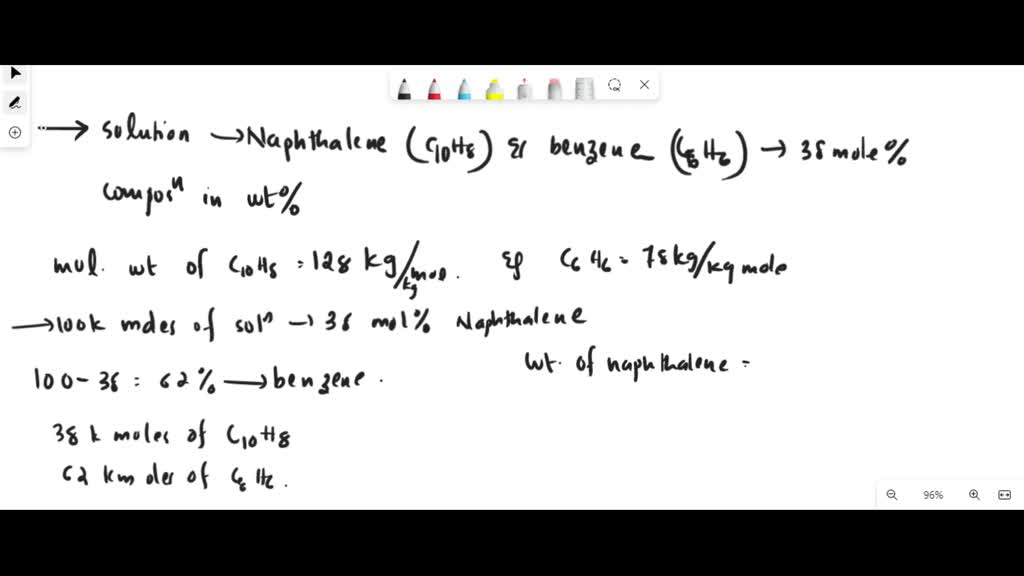 → solution → Naphthalene (C10H8) & benzene (C6H6) → 38 mole%
composⁿ in wt%
mul. wt of C10H8 = 128 kg/kg mol. & C6H6 = 78 kg/kg mole
→ 100k moles of solⁿ → 38 mol% Naphthalene
wt. of naphthalene =
100-38 = 62% → benzene.
38 k moles of C10H8
62 km oles of C6H6.
96%